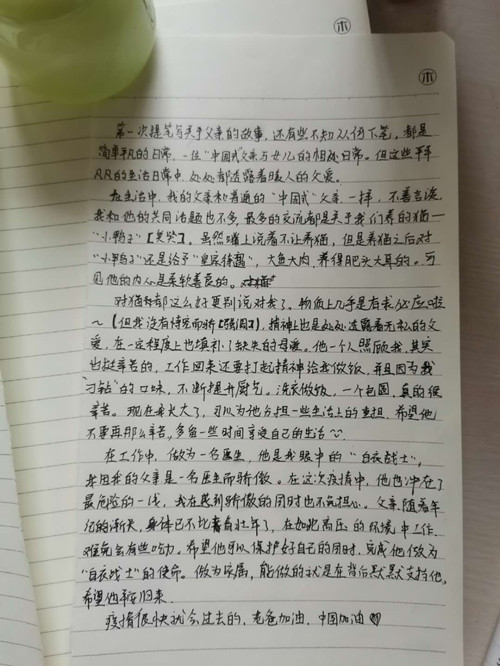 木
木
第一次提笔写关于父亲的故事，还有些不知从何下笔。都是
简单平凡的日常，一位“中国式”父亲与女儿的相处日常。但这些平平
凡凡的生活日常中，处处都透露着暖人的父爱。
在生活中，我的父亲和普通的“中国式”父亲一样，不善言谈。
我和他的共同话题也不多，最多的交流都是关于我们养的猫——
“小鸭子”【笑哭】。虽然嘴上说着不让养猫，但是养猫之后对
“小鸭子”还是给予“皇家待遇”，大鱼大肉，养得肥头大耳的。可
见他的内心是柔软善良的。
对猫都这么好更别说对我了。物质上几乎是有求必应啦
～（但我没有恃宠而骄【强调】），精神上也是处处透露着无私的父
爱，在一定程度上也填补了缺失的母爱。他一个人照顾我，其实
也挺辛苦的，工作回来还要打起精神给我做饭，并且因为我
“刁钻”的口味，不断提升厨艺。洗衣做饭，一个包圆，真的很
辛苦。现在我长大了，可以为他分担一些生活上的重担，希望他
不要再那么辛苦，多留一些时间享受自己的生活～
在工作中，做为一名医生，他是我眼中的“白衣战士”，
我因我的父亲是一名医生而骄傲。在这次疫情中，他也冲在了
最危险的一线，我在感到骄傲的同时也不免担心。父亲随着年
纪的渐长，身体已不比青壮年了，在如此高压的环境中工作，
难免会有些吃力。希望他可以保护好自己的同时，完成他做为
“白衣战士”的使命。做为家属，能做的就是在背后默默支持他，
希望他平安归来。
疫情很快就会过去的，老爸加油，中国加油♡